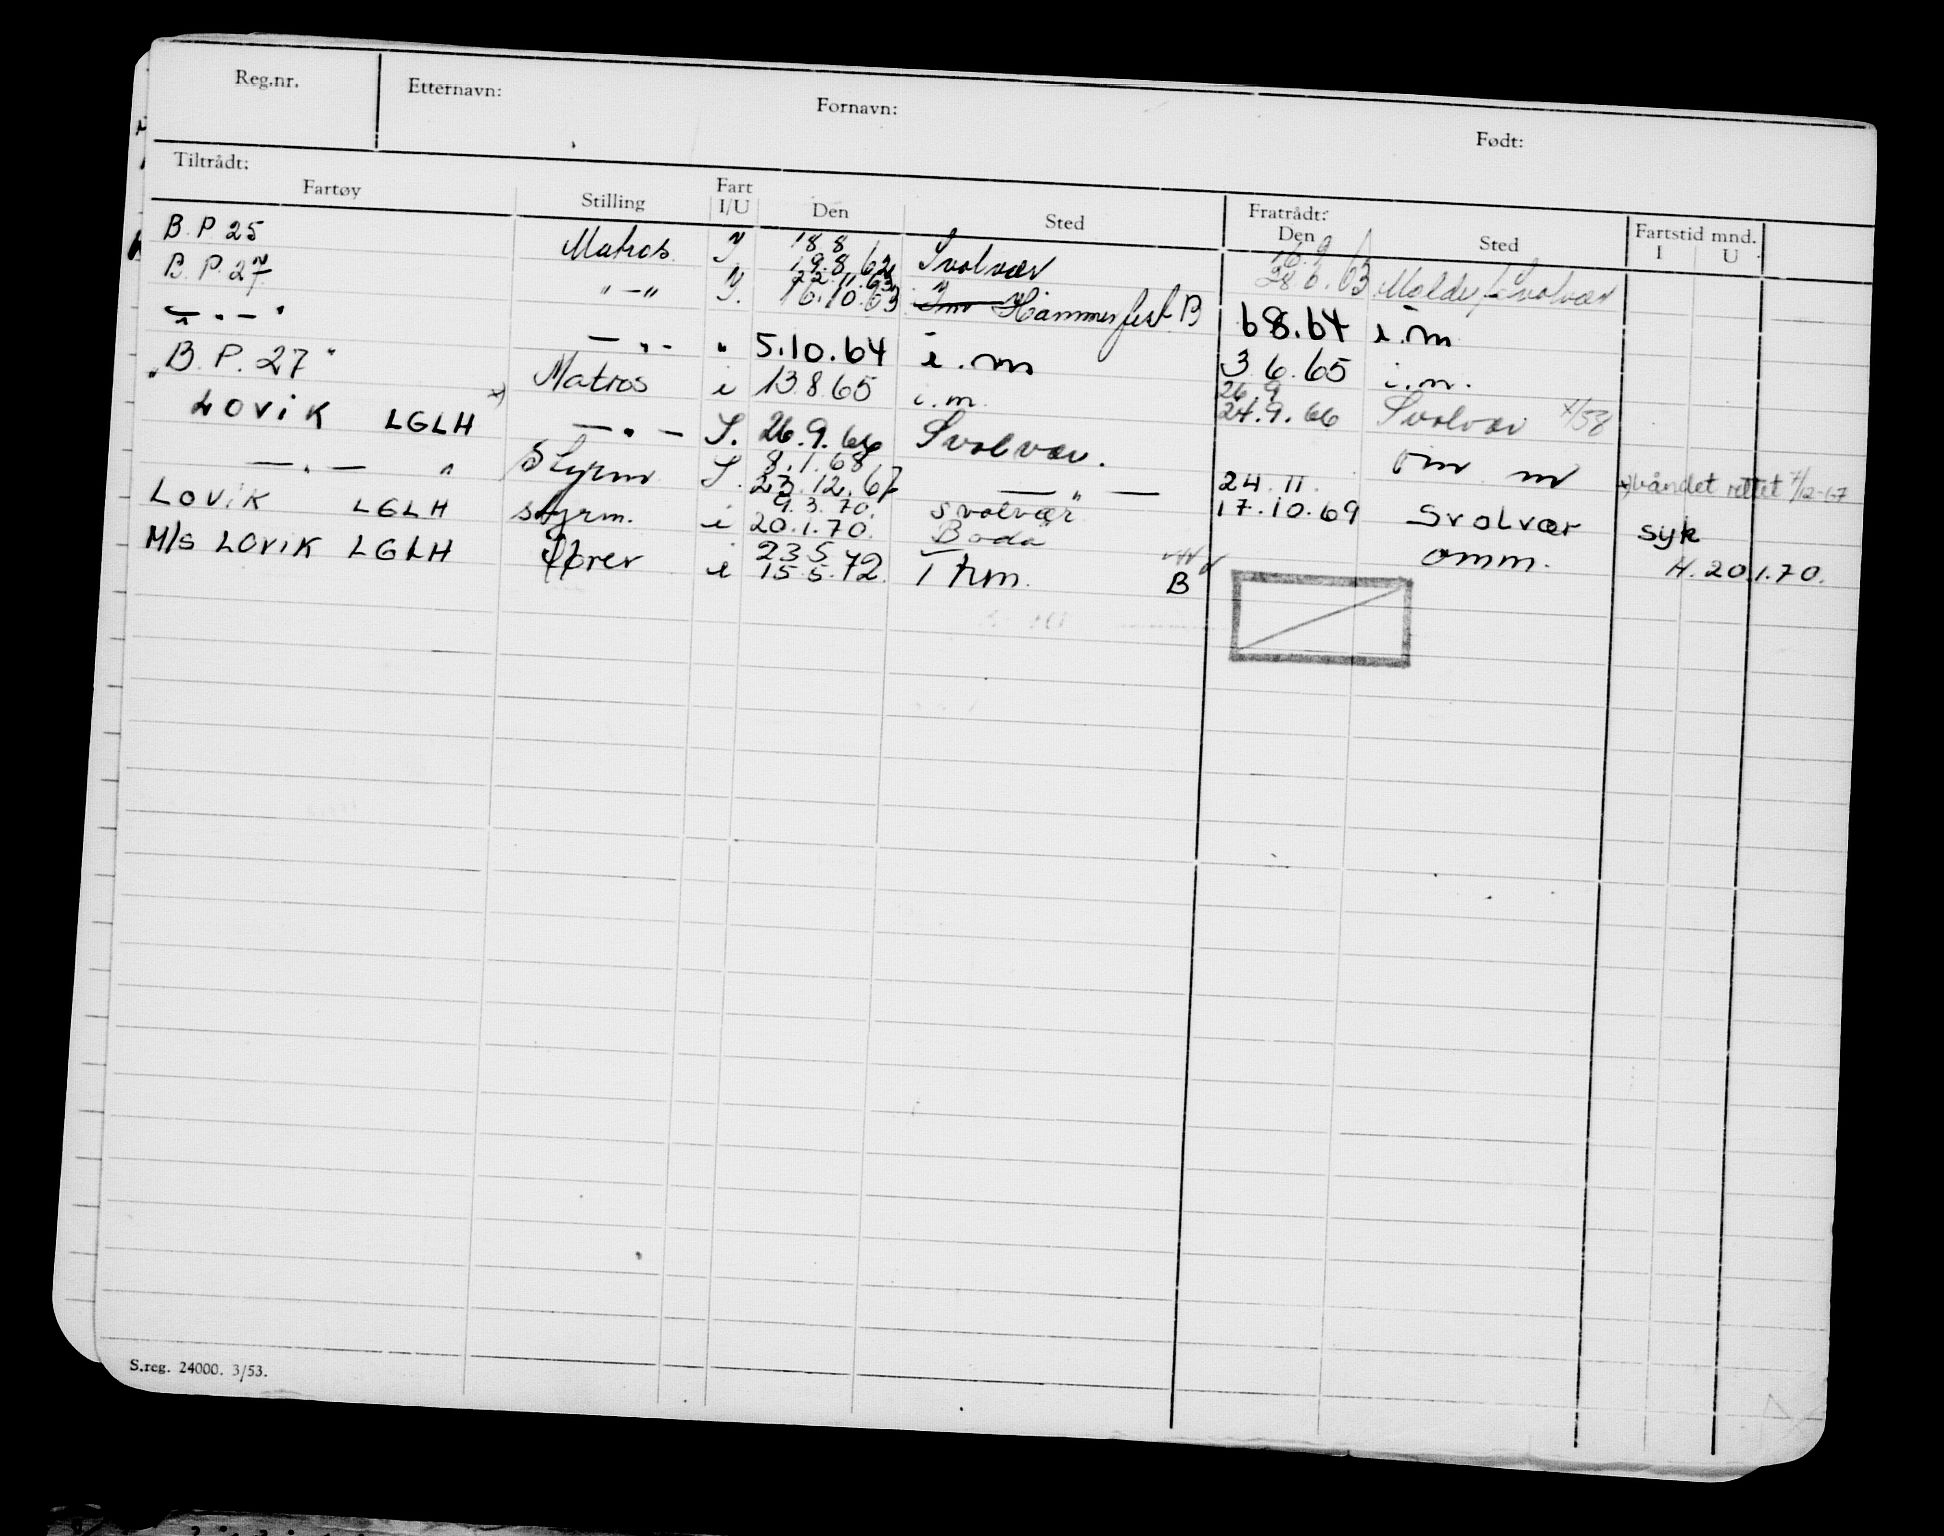 Reg.nr. Etternavn: Fornavn: Født:
Tiltrådt: Fratrådt:
Fartøy Stilling Fart I/U Den Sted Den Sted Fartstid mnd. I U
B. P. 25 Matros 18.8 19.8.62 Svolvær 28.6.63 Molde / Svolvær
B. P. 27 " — " 22.11.63 16.10.63 Hammerfest B 6 8.64 i.m
— " — " — " — " 5.10.64 i.m 3 6.65 i.m.
"B. P. 27" Matros i 13.8.65 i.m. 26.9 24.9.66 Svolvær
LOVIK LGLH x) — " — I. 26.9.66 Svolvær. om m
— " — " Styrm I. 8.1.68 23.12.67 — " — 24.11. x) båndet rettet 4/12-67
LOVIK LGLH styrm. i 9.3.70. 20.1.70. svolvær Bodø 17.10.69 Svolvær syk
M/S LOVIK LGLH fører i 23.5 15.5.72. Thm. B omm. H. 20.1.70.
S.reg. 24000. 3/53.